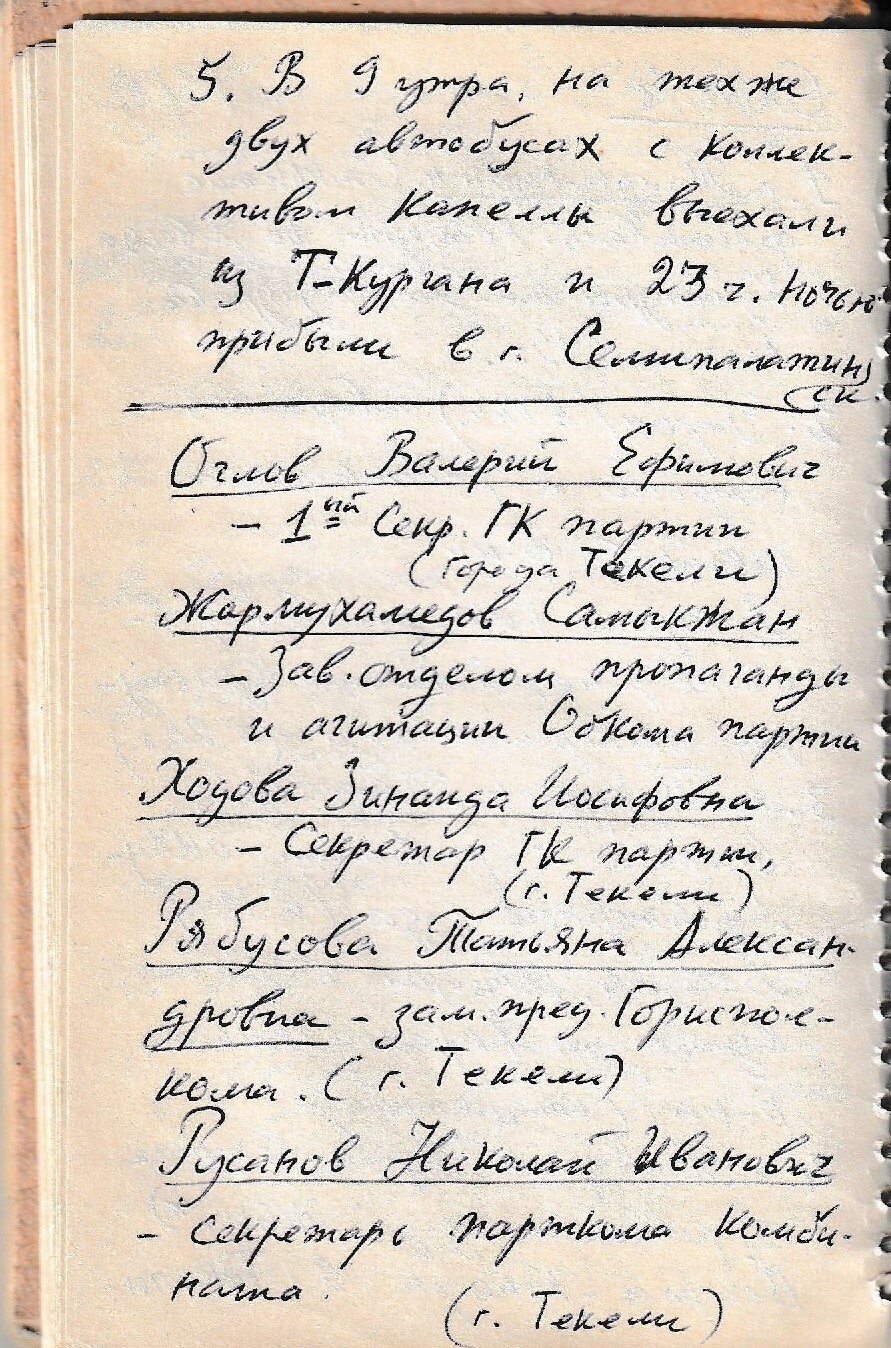 5. В 9 утра, на тех же
двух автобусах с коллек-
тивом Капеллы выехали
из Т-Кургана и 23 ч. ночью
прибыли в г. Семипалатин
ск.
Оглов Валерий Ефимович
- 1ый Секр. ГК партии
(города Текели)
Жармухамедов Самыкжан
- Зав. отделом пропаганды
и агитации Обкома партии
Ходова Зинаида Иосифовна
- Секретар ГК партии,
(г. Текели)
Рябусова Татьяна Алексан-
дровна - зам. пред. Гориспол-
кома. (г. Текели)
Русанов Николай Иванович
- секретарь парткома Комби-
ната.
(г. Текели)